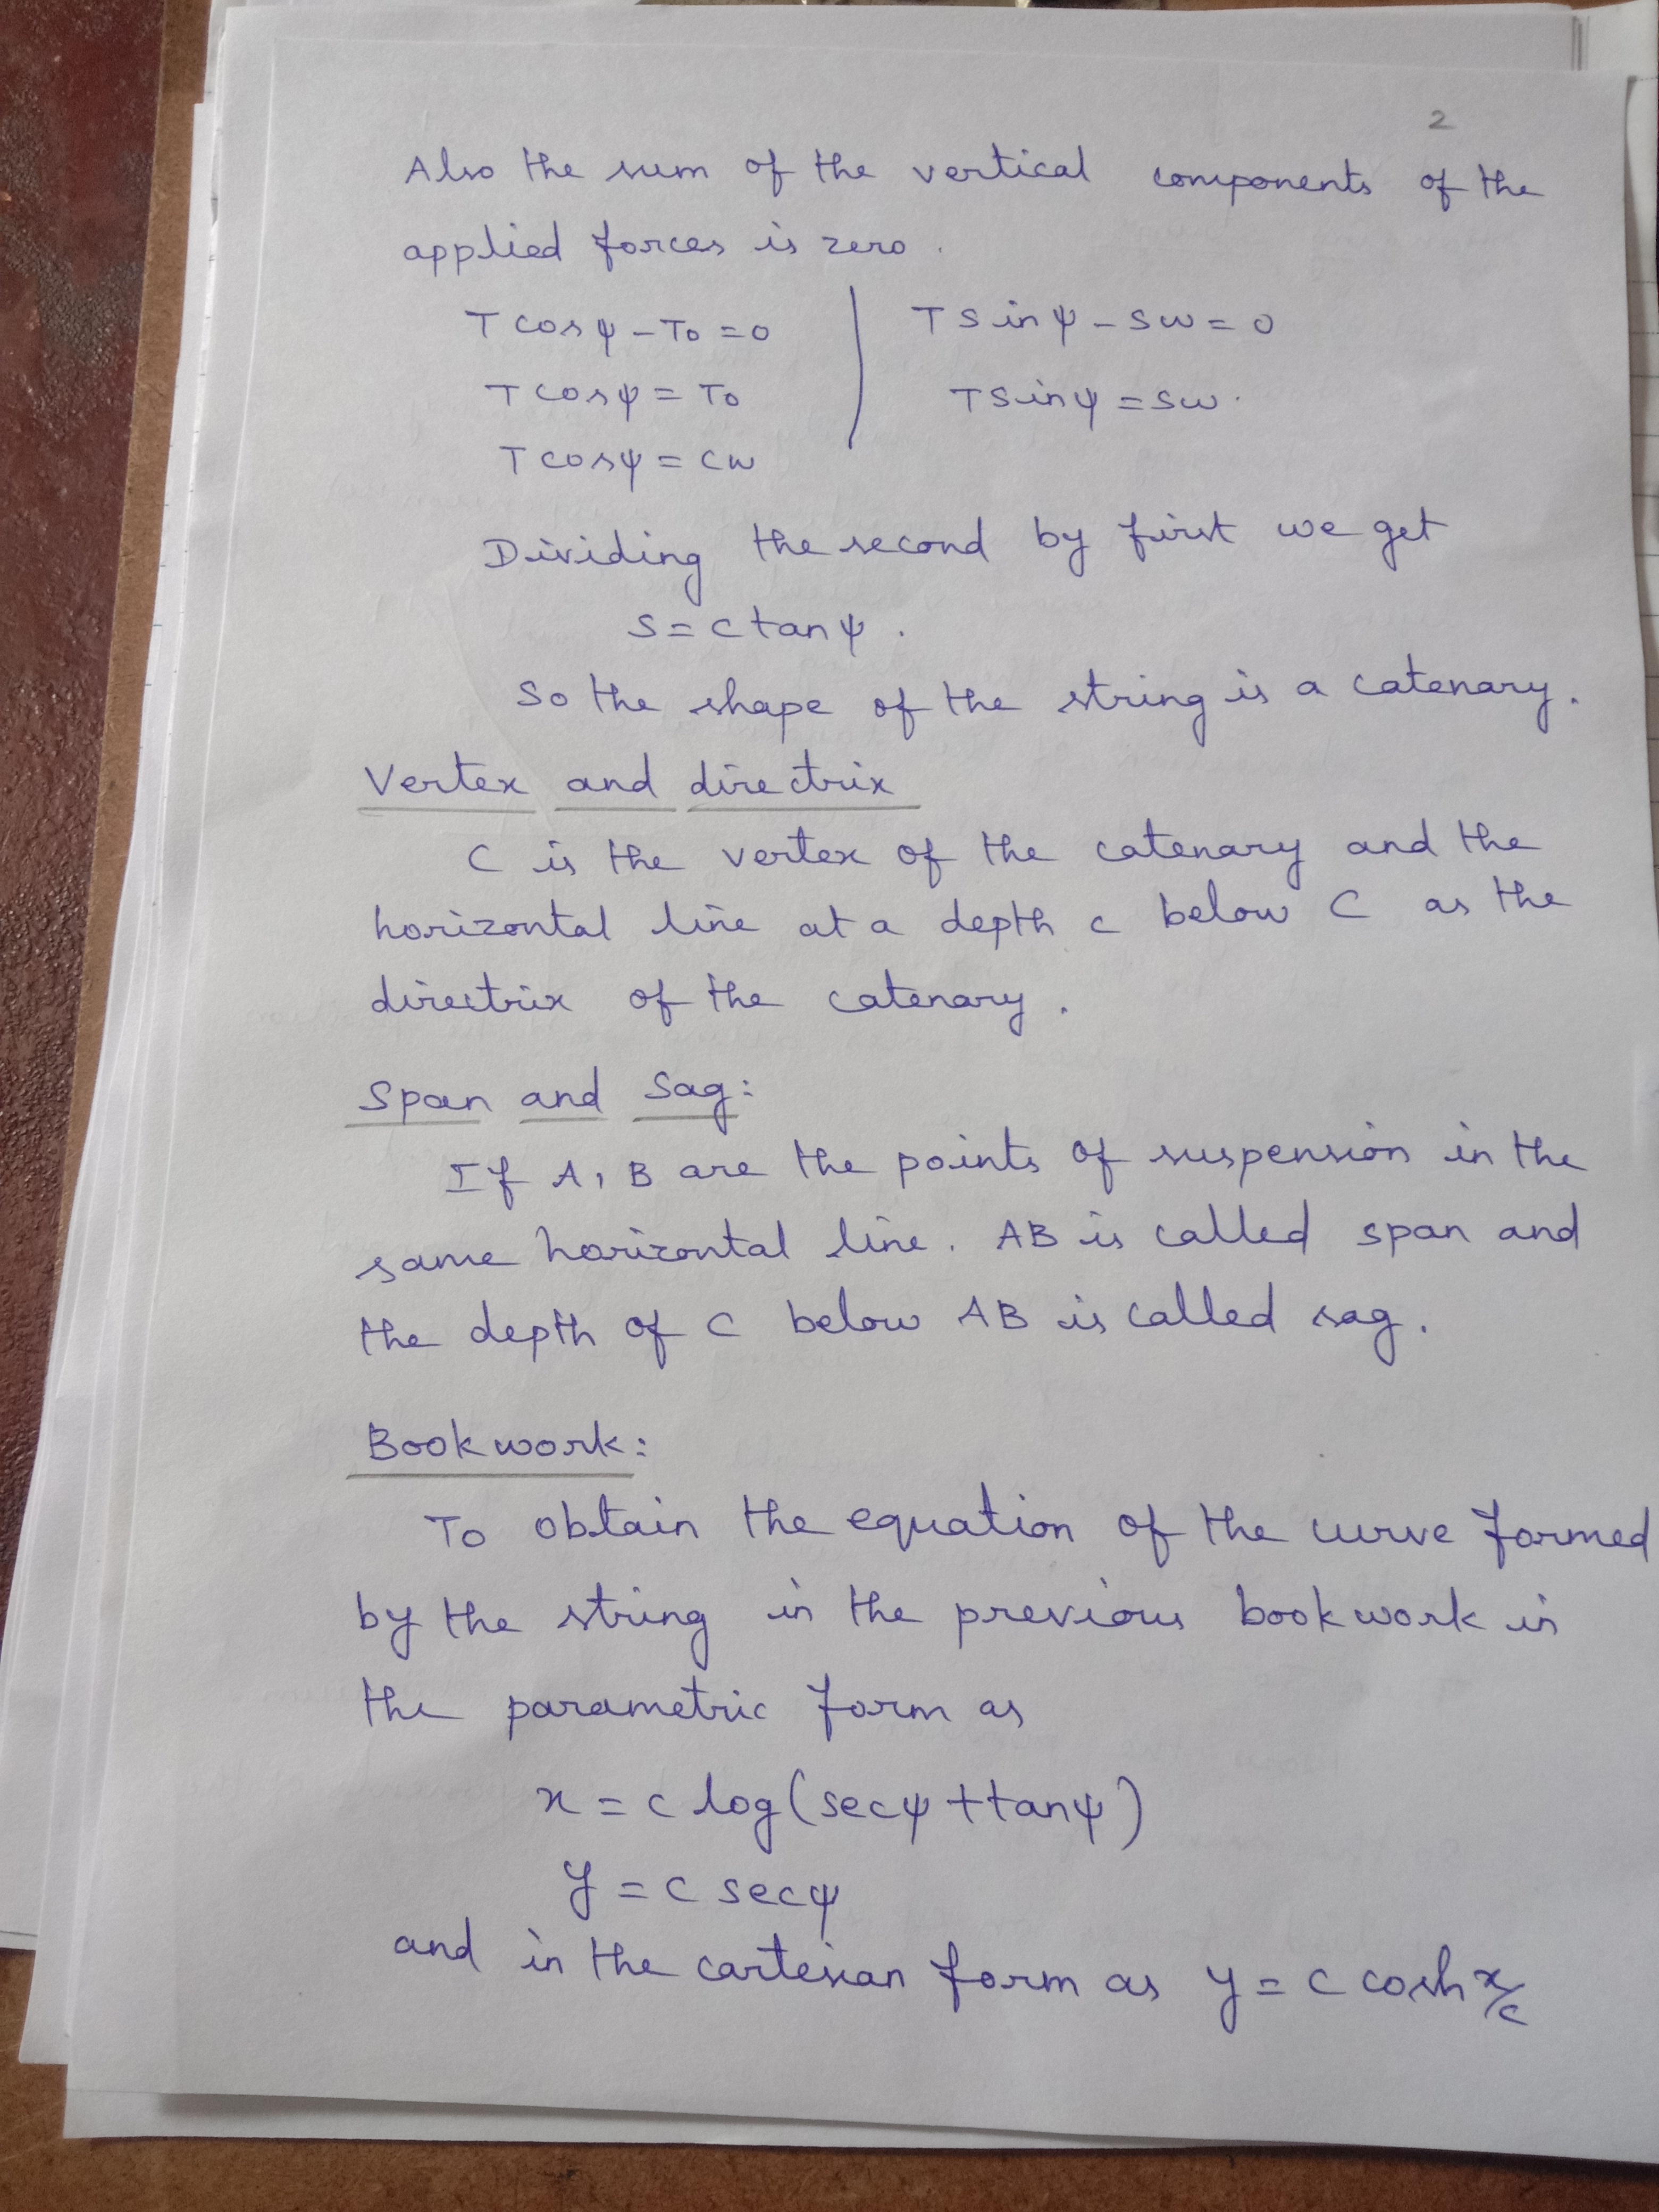 2
Also the sum of the vertical components of the
applied forces is zero.
T cosψ - T₀ = 0 | T sinψ - sw = 0
T cosψ = T₀ | T sinψ = sw.
T cosψ = cw
Dividing the second by first we get
s = c tanψ.
So the shape of the string is a catenary.
Vertex and directrix
C is the vertex of the catenary and the
horizontal line at a depth c below C as the
directrix of the catenary.
Span and Sag:
If A, B are the points of suspension in the
same horizontal line. AB is called span and
the depth of C below AB is called sag.
Bookwork:
To obtain the equation of the curve formed
by the string in the previous bookwork in
the parametric form as
x = c log(secψ + tanψ)
y = c secψ
and in the cartesian form as y = c cosh x/c